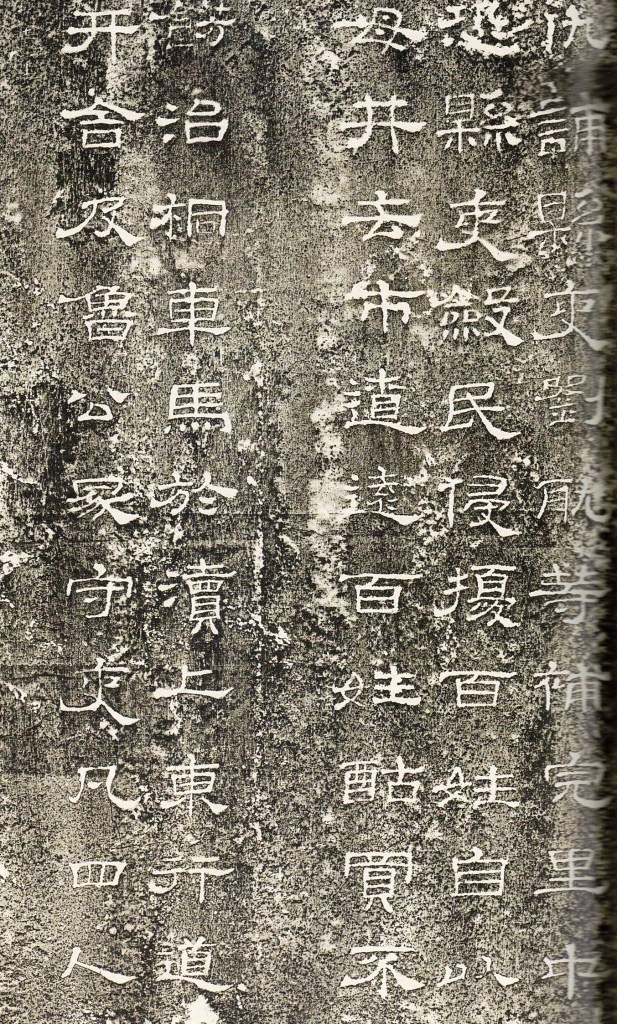 仇誦縣吏劉耽等補完里中
恐縣吏斂民侵擾百姓自以
母井去市遼遠百姓酤買不
餝治桐車馬於瀆上東行道
井舍及魯公冢守吏凡四人